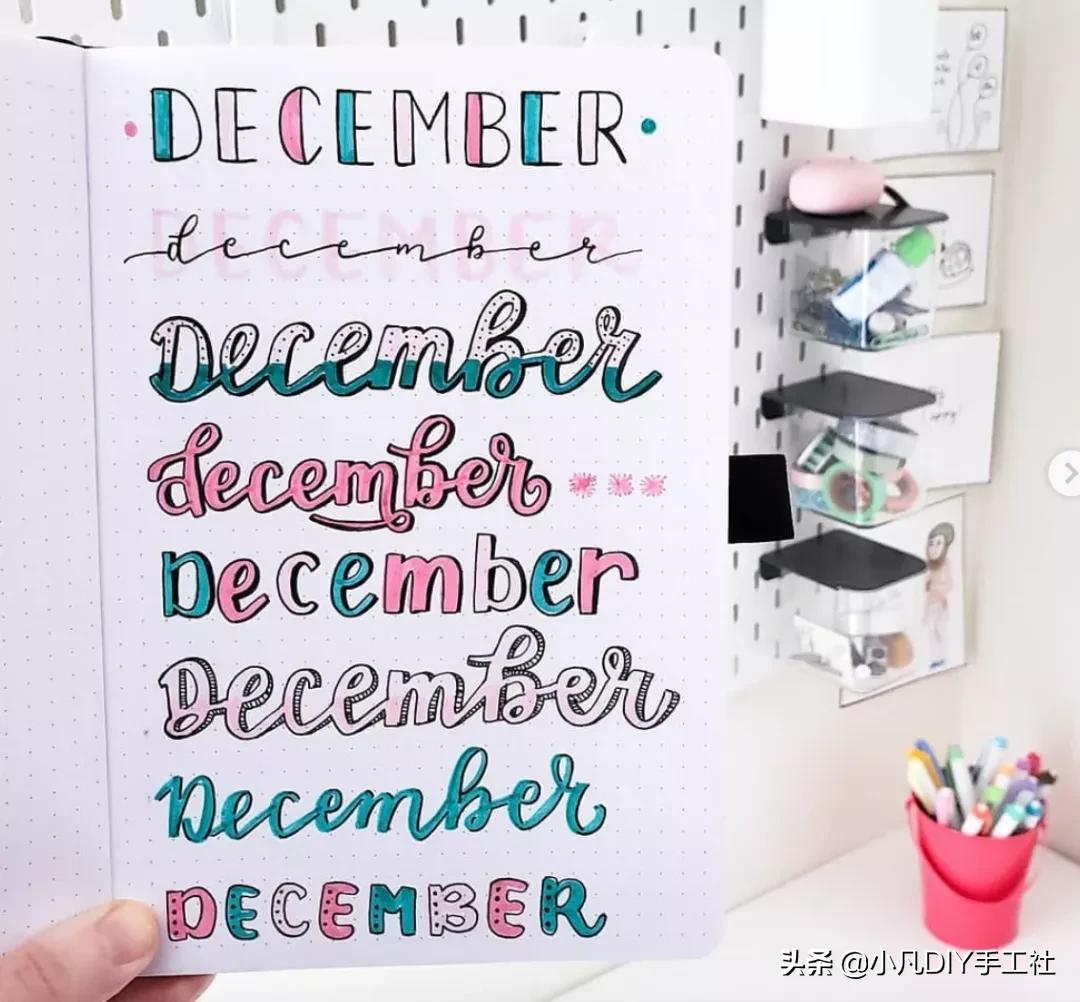 DECEMBER
DECEMBER
december
December
december
December
December
December
DECEMBER
头条 @小凡DIY手工社